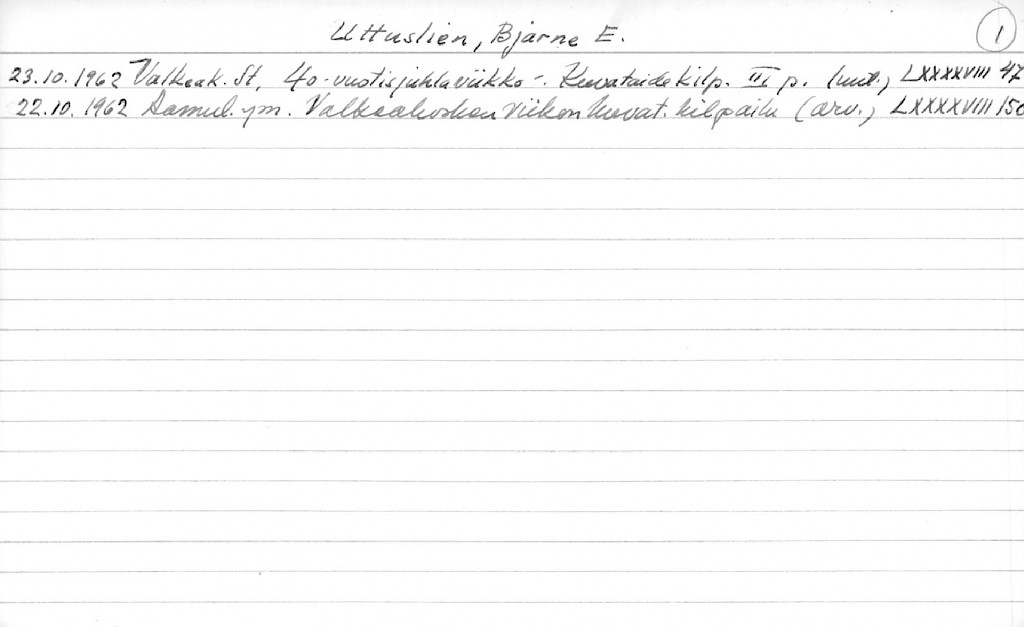 Uttuslien, Bjarne E. 1
23.10.1962 Valkeak. St, 40-vuotisjuhlaviikko - Kuvataidekilp. III p. (uut.) LXXXXVIII 47
22.10.1962 Aamul. ym. Valkeakosken Viikon kuvat. kilpailu (arv.) LXXXXVIII 150